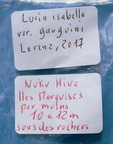 Luria isabella
var. gauguini
Lorenz, 2017
Nuku Hiva
Iles Marquises
par
10 à 12 m
sous des rochers